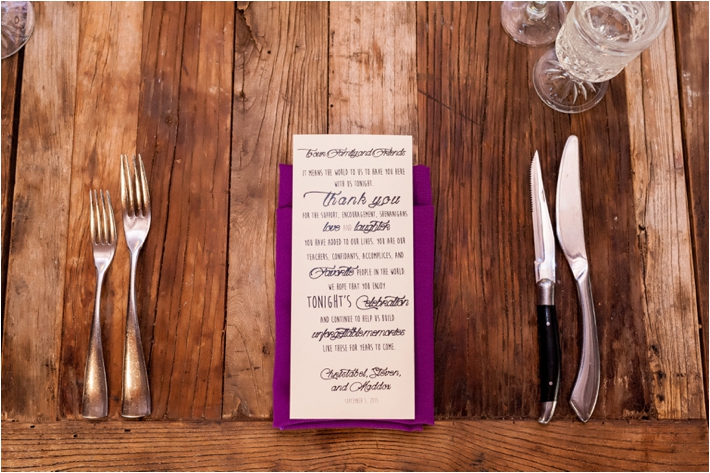 To our Family and Friends,
IT MEANS THE WORLD TO US TO HAVE YOU HERE
WITH US TONIGHT.
Thank you
FOR THE SUPPORT, ENCOURAGEMENT, SHENANIGANS
love AND laughter
YOU HAVE ADDED TO OUR LIVES. YOU ARE OUR
TEACHERS, CONFIDANTS, ACCOMPLICES, AND
Favorite PEOPLE IN THE WORLD
WE HOPE THAT YOU ENJOY
TONIGHT'S Celebration
AND CONTINUE TO HELP US BUILD
unforgettable memories
LIKE THESE FOR YEARS TO COME.
Steven,
and Maddox
SEPTEMBER 5, 2015